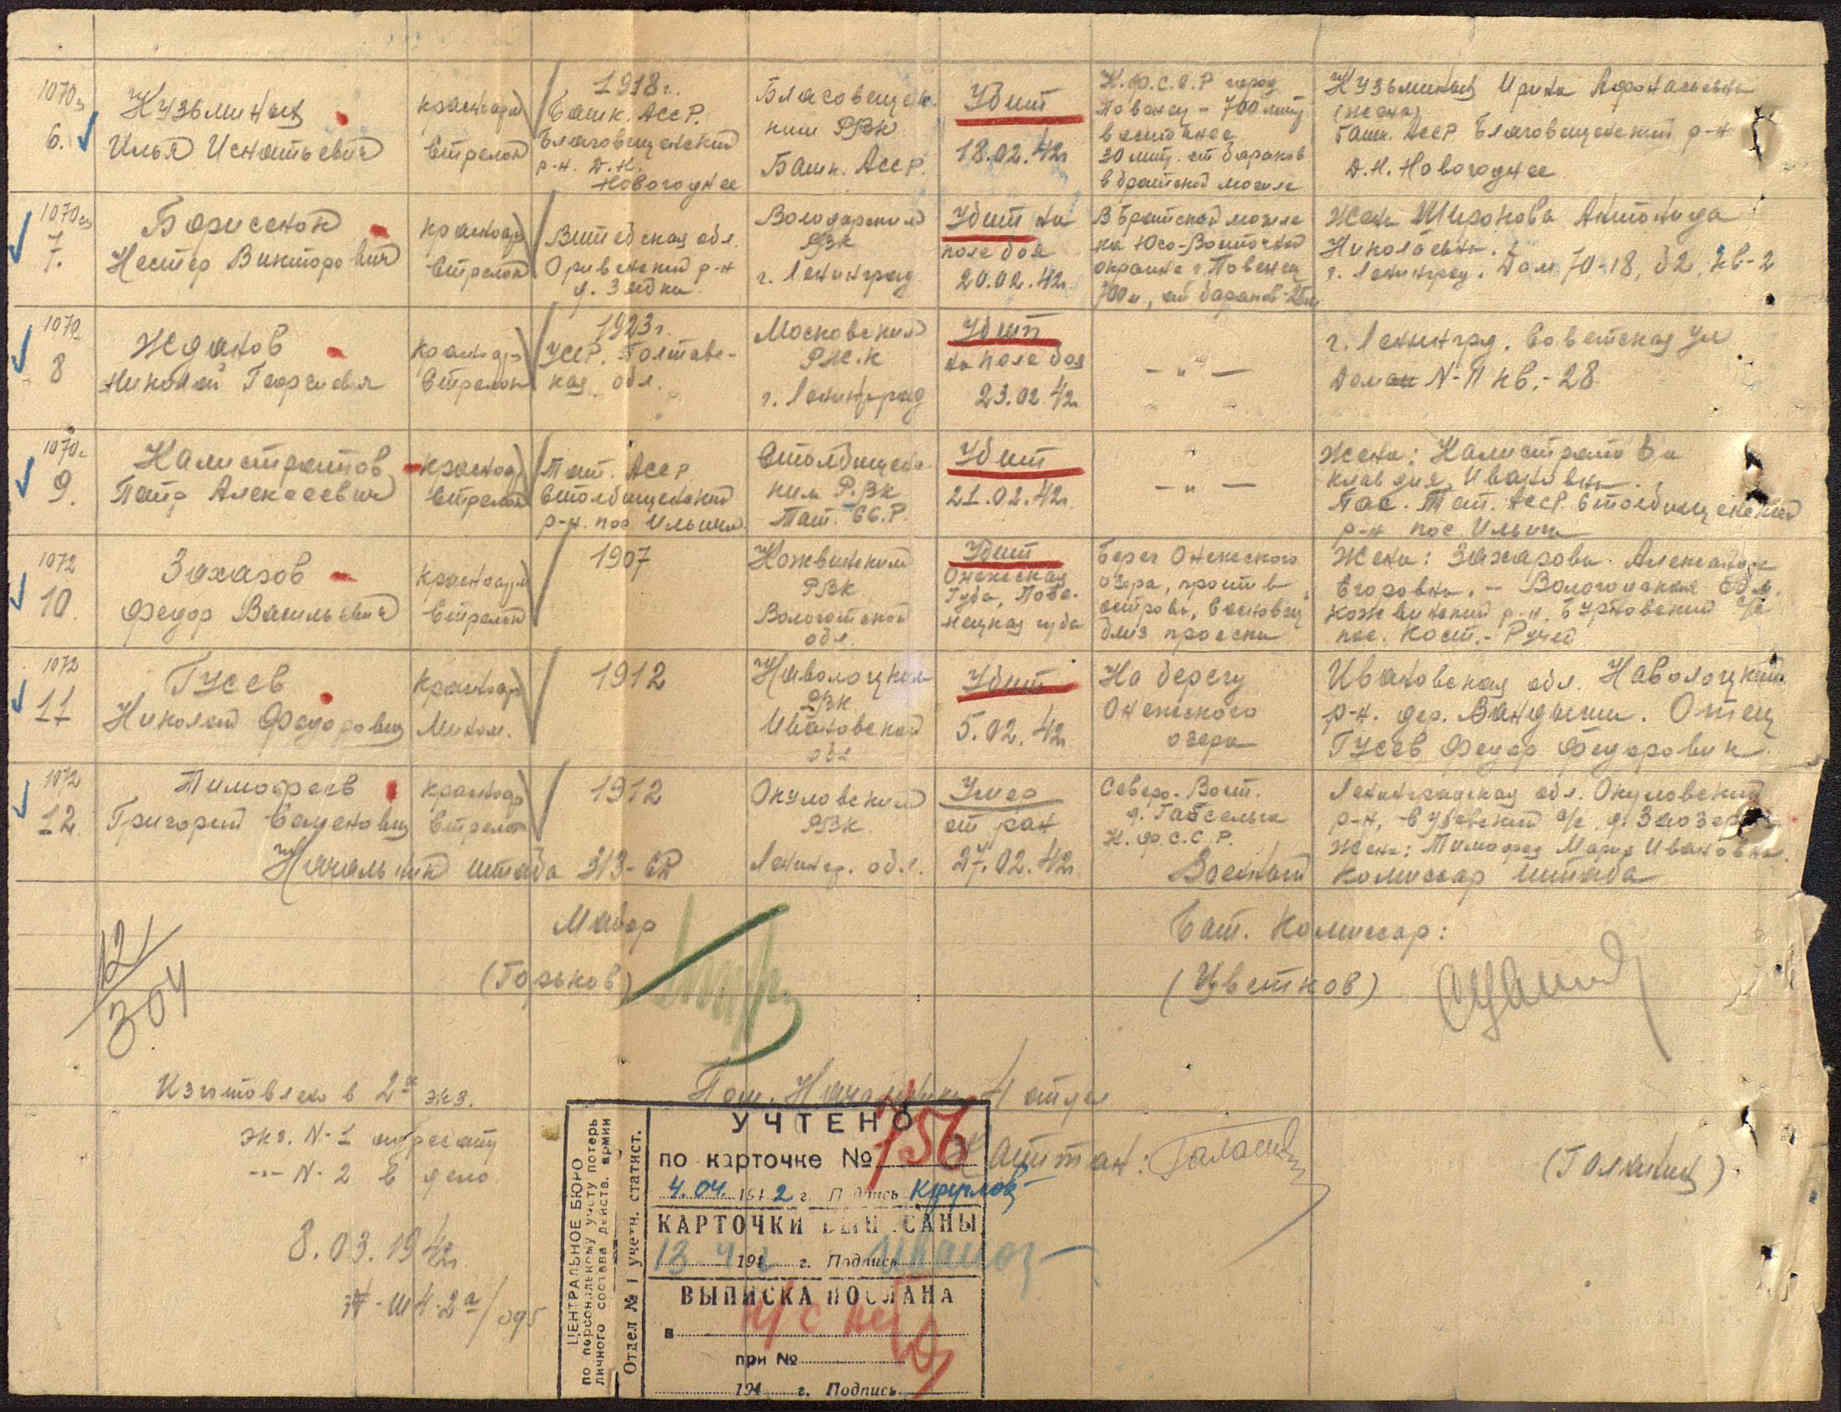 6.
Кузьминых
Илья Игнатьевич
Красноарм
Стрелок
1918 г.
Башк. АССР.
Благовещенский
р-н. Д.Н.
Новогоднее
РВК
Башк. АССР.
Убит
18.02.42г
К.Ф.С.С.Р город
Повенец - 700 мтр
восточнее
30 мтр. от бараков
в братской могиле
Кузьминых Ирина Афонасьевна
(жена)
Башк. АССР Благовещенский р-н
Д.Н. Новогоднее
7.
Борисенок
Нестер Викторович
Красноар
Стрелок
Витебская обл.
р-н
Володарский
РВК
г. Ленинград
Убит на
поле боя
20.02.42г
В братской могиле
на Юго-Восточной
окраине г. Повенец
700 м, от бараков - 25м
Жена Широкова Антонида
Николаевна.
г. Ленинград. Дом 70-18, кв-2
8
Жданов
Николай Георгиевич
Красноар
Стрелок
1923г.
УССР. Полтавс-
кая обл.
Московский
РВК
г. Ленинград
Убит
на поле боя
23.02.42г
— " —
г. Ленинград. Советская ул
Дом N-11 кв.-28
9.
Калистратов
Петр Алексеевич
Красноар
Стрелок
Тат. АССР
Столбищенский
р-н. пос. Ильича
Столбищенс-
ким Р.ВК
Тат. СС.Р.
Убит
21.02.42г.
— " —
Жена: Калистратова
Клавдия Ивановна.
Тат. АССР Столбищенский
р-н пос. Ильича
1072
10.
Захаров
Федор Васильевич
Красноарм
Стрелок
1907
РВК
Вологотской
обл.
Убит
Онежская
Губа, Пове-
нецкая губа
Берег Онежского
озера, против
острова,
близ просеки
Жена: Захарова Александра
Егоровна. - Вологодская обл.
р-н.
пос. Кост.-Ручей
1072
11
Гусев
Николай Федорович
Красноар
Мином.
1912
Наволоцким
РВК
Ивановской
обл
Убит
5.02.42г
На берегу
Онежского
озера
Ивановская обл. Наволоцкий
р-н. дер. Отец
Гусев Федор Федорович
1072
12.
Тимофеев
Григорий Семенович
Красноар
Стрелок
1912
Окуловский
РВК.
Ленингр. обл.
Умер
от ран
27.02.42г.
Северо-Вост.
д. Габсельга
К.Ф.С.С.Р.
Ленинградская обл. Окуловский
р-н,
Жена: Тимофеева Мария Ивановна.
Начальник штаба 313-СД
Военный комиссар штаба
Майор
Бат. Комиссар:
(Горьков)
(Цветков)
12/304
Изготовлено в 2х экз.
экз. N-1 адресату
--- N-2 в дело
8.03.1942г.
Пом. Начальника 4 отдел
Капитан:
(Галанин)
ЦЕНТРАЛЬНОЕ БЮРО
по персональному учету потерь
личного состава действ. армии
Отдел № 1 учетн. статист.
УЧТЕНО
по карточке № 156
4.04. 1942 г. Подпись
КАРТОЧКИ ВЫПИСАНЫ
13 4 1942 г. Подпись
ВЫПИСКА ПОСЛАНА
в
при №
194 г. Подпись